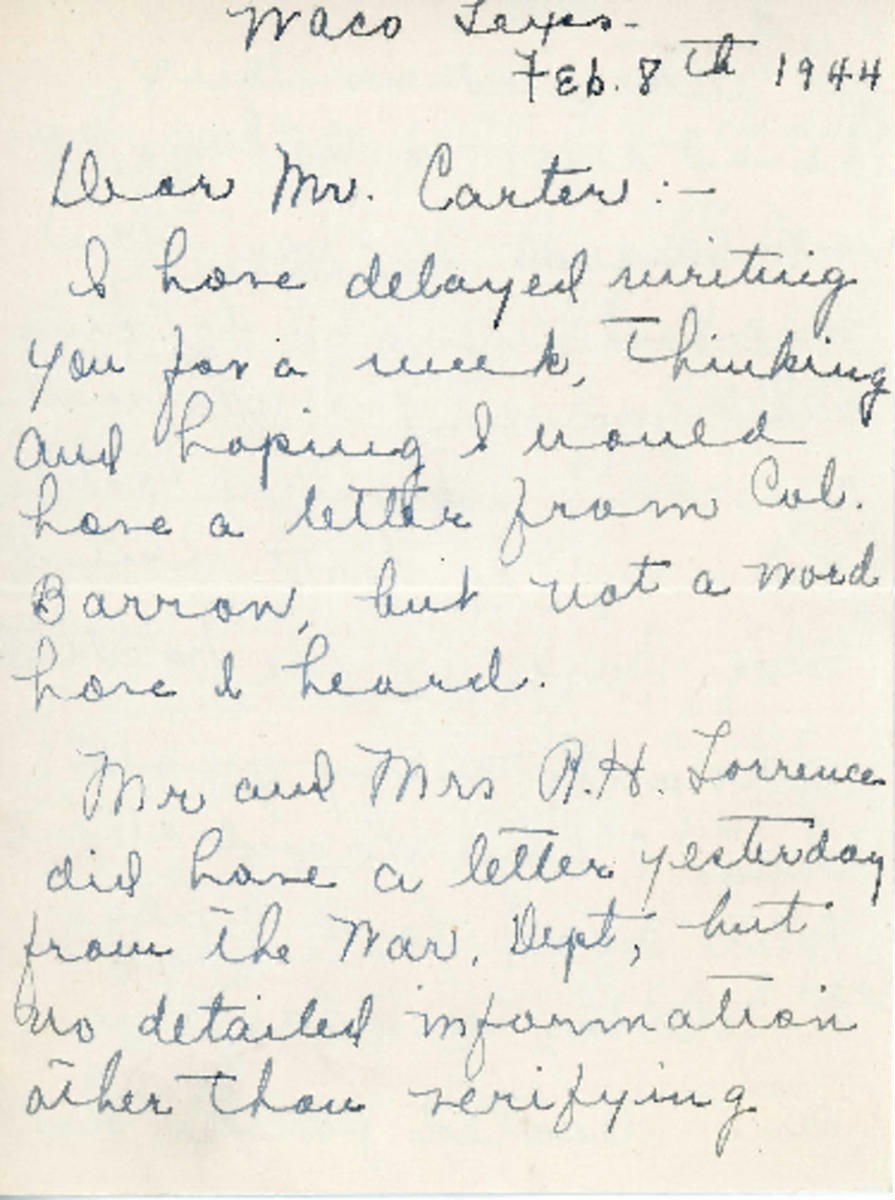 Waco Texas-
Feb. 8th 1944
Dear Mr. Carter:-
I have delayed writing
you for a week, thinking
and hoping I would
have a letter from Col.
Barron, but not a word
have I heard.
Mr and Mrs R.H. Torrence
did have a letter yesterday
from the War. Dept, but
no detailed information
other than verifying